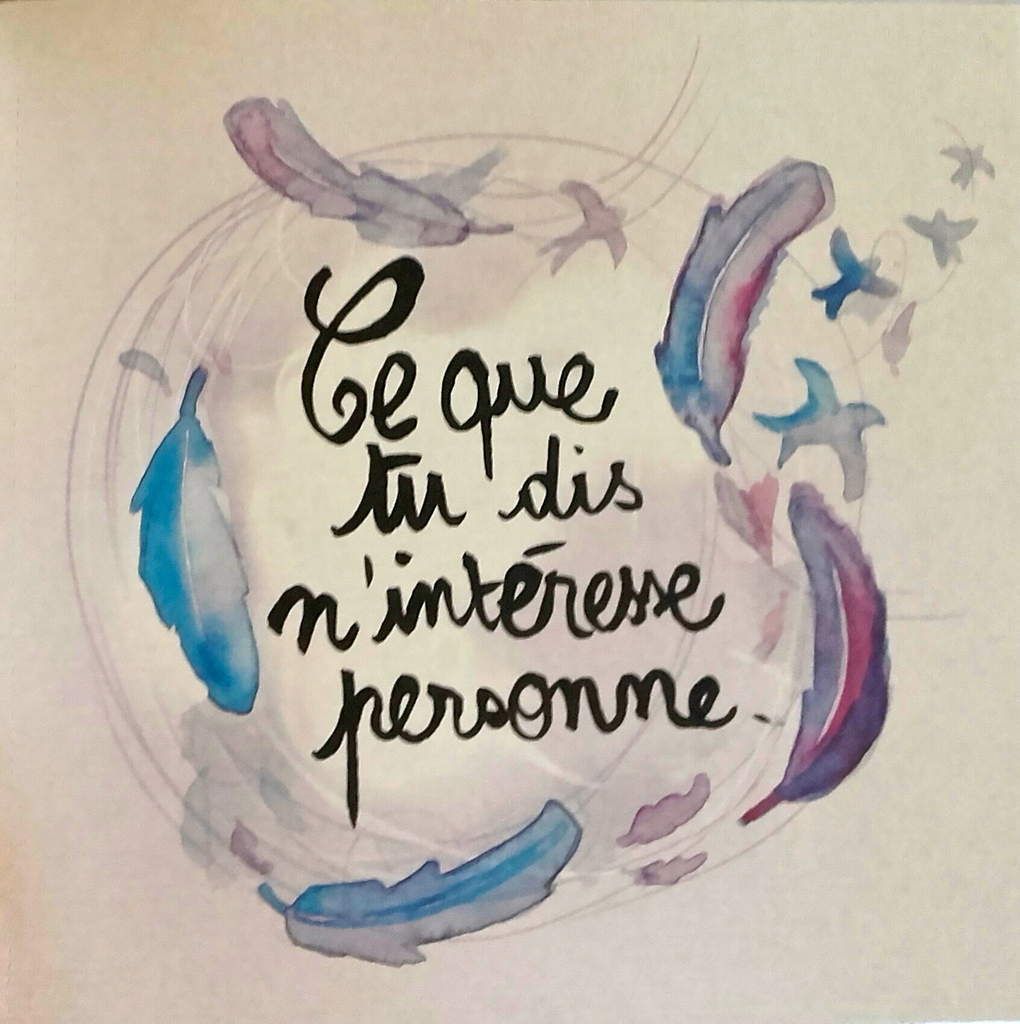 Ce que
tu dis
n'intéresse
personne.